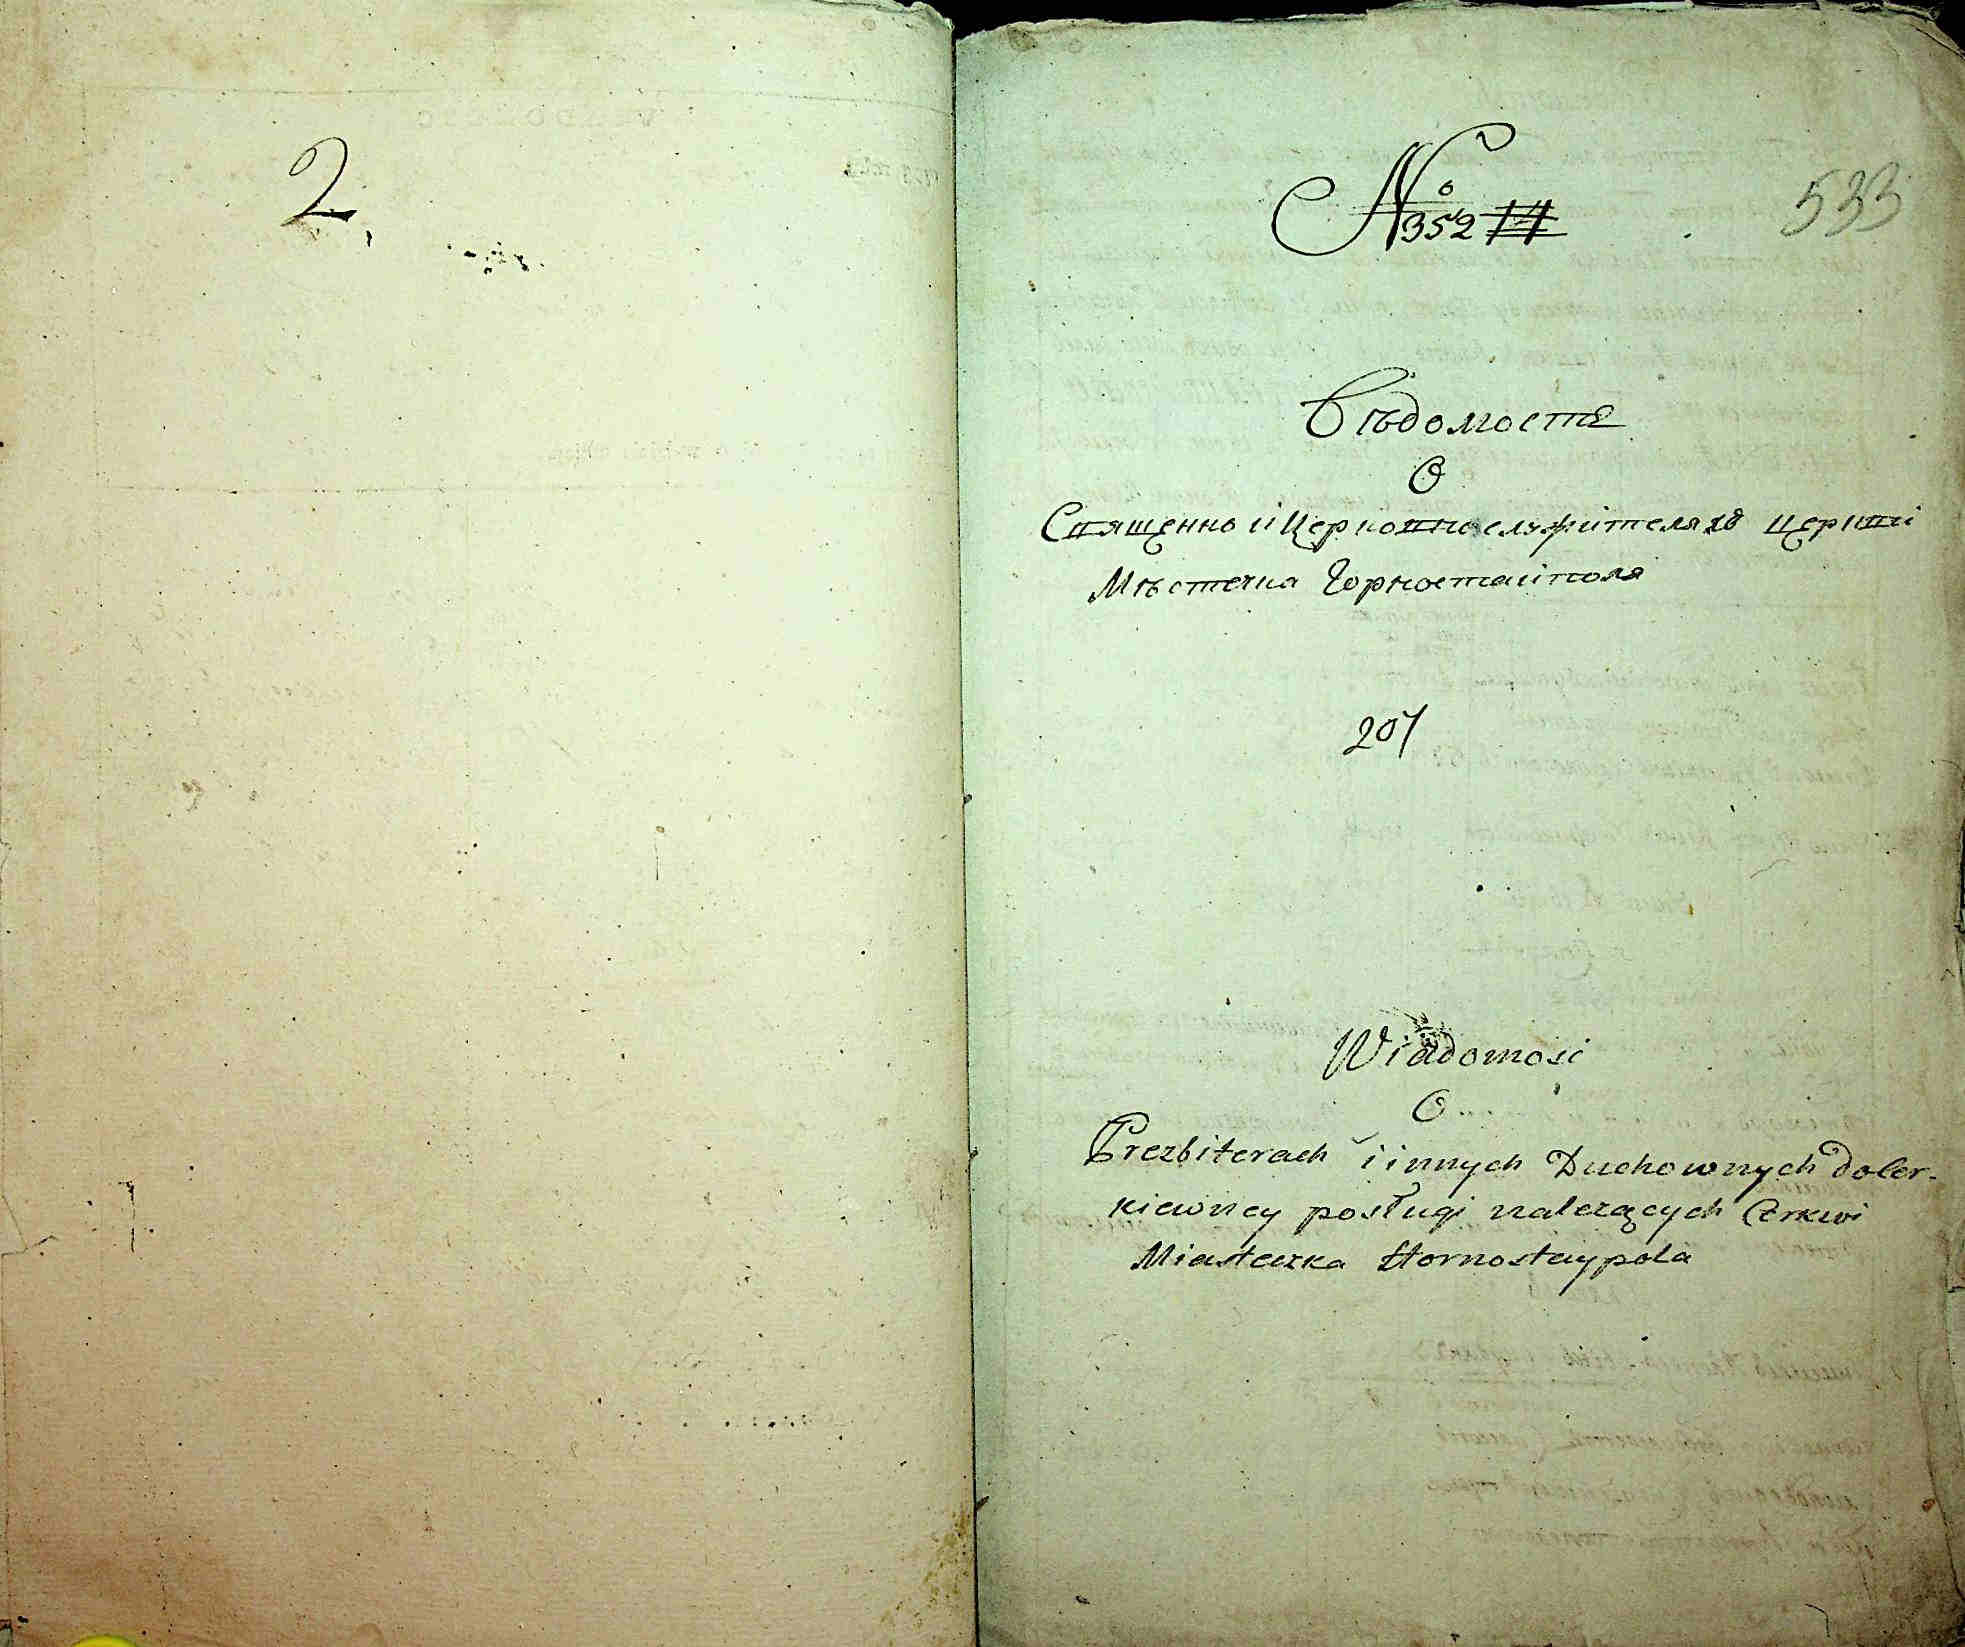 2
№ 352 14
533
Вѣдомость
О
Священно и Церковно служителяхъ церкви
Мѣстечка Горностайполя
207
Wiadomość
O
Prezbiterach i innych Duchownych do Cer-
kiewney posługi należących Cerkwi
Miasteczka Hornostaypola